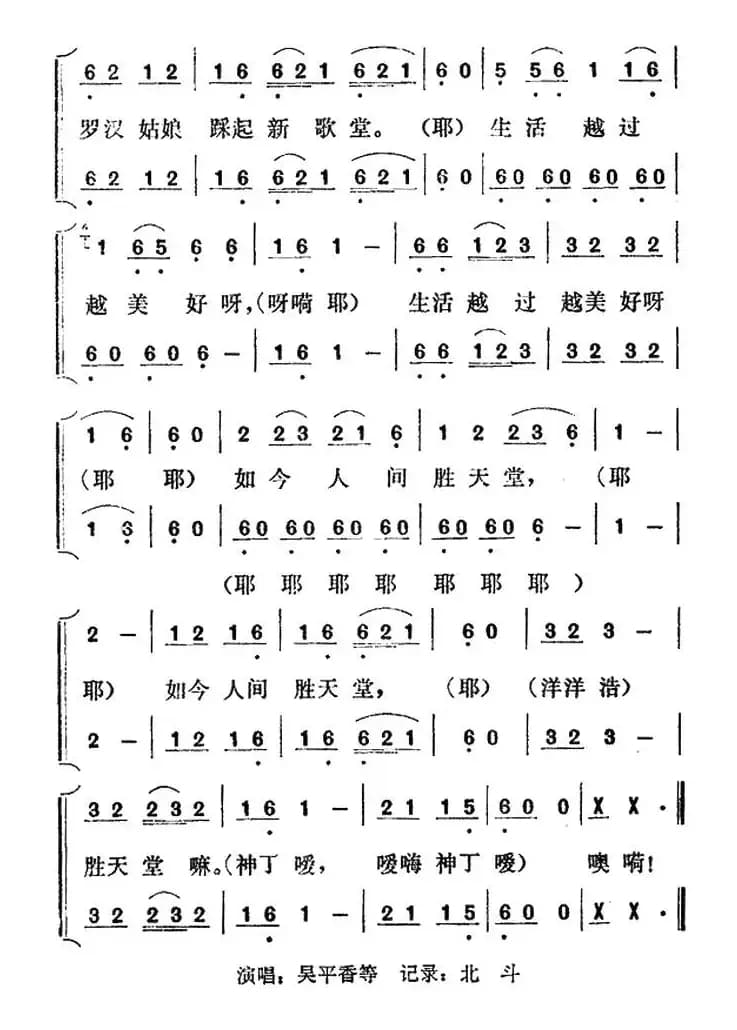 6 2 1 2 | 1 6 6 2 1 6 2 1 | 6 0 | 5 5 6 1 1 6
罗汉 姑娘 踩起 新 歌 堂。 (耶) 生 活 越 过
6 2 1 2 | 1 6 6 2 1 6 2 1 | 6 0 | 6 0 6 0 6 0 6 0
1 6 5 6 6 | 1 6 1 - | 6 6 1 2 3 | 3 2 3 2 |
越 美 好 呀,(呀嗬 耶) 生 活 越 过 越 美 好 呀
6 0 6 0 6 - | 1 6 1 - | 6 6 1 2 3 | 3 2 3 2 |
1 6 | 6 0 | 2 2 3 2 1 6 | 1 2 2 3 6 | 1 - |
(耶 耶) 如 今 人 间 胜 天 堂, (耶
1 6 | 6 0 | 6 0 6 0 6 0 6 0 | 6 0 6 0 6 - | 1 - |
(耶 耶 耶 耶 耶 耶 耶 )
2 - | 1 2 1 6 | 1 6 6 2 1 | 6 0 | 3 2 3 - |
耶) 如今 人间 胜 天 堂, (耶) (洋洋 浩)
2 - | 1 2 1 6 | 1 6 6 2 1 | 6 0 | 3 2 3 - |
3 2 2 3 2 | 1 6 1 - | 2 1 1 5 | 6 0 0 | X X · ‖
胜天 堂 嘛。(神丁 嗳, 嗳嗨 神丁 嗳) 噢 嗬!
3 2 2 3 2 | 1 6 1 - | 2 1 1 5 | 6 0 0 | X X · ‖
演唱:吴平香等 记录:北 斗